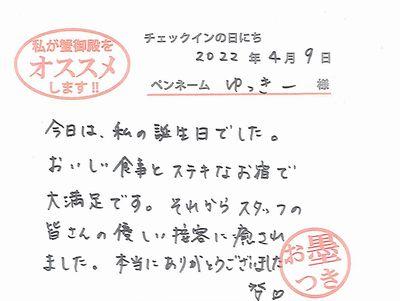 私が蟹御殿を
オススメ
します!!
チェックインの日にち
2022 年 4 月 9 日
ペンネーム ゆっきー 様
今日は、私の誕生日でした。
おいしい食事とステキなお宿で
大満足です。それからスタッフの
皆さんの優しい接客に癒され
ました。本当にありがとうございました
お墨
つき